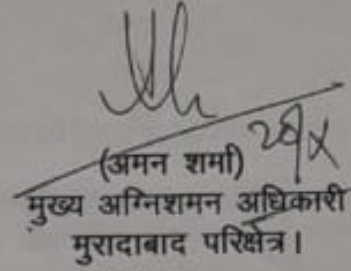 (अमन शर्मा)
मुख्य अग्निशमन अधिकारी
मुरादाबाद परिक्षेत्र।